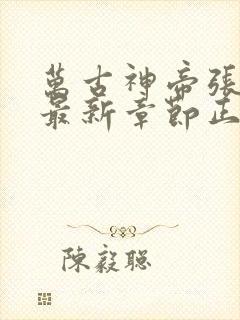 萬古神帝張
最新章節正
陳毅聰